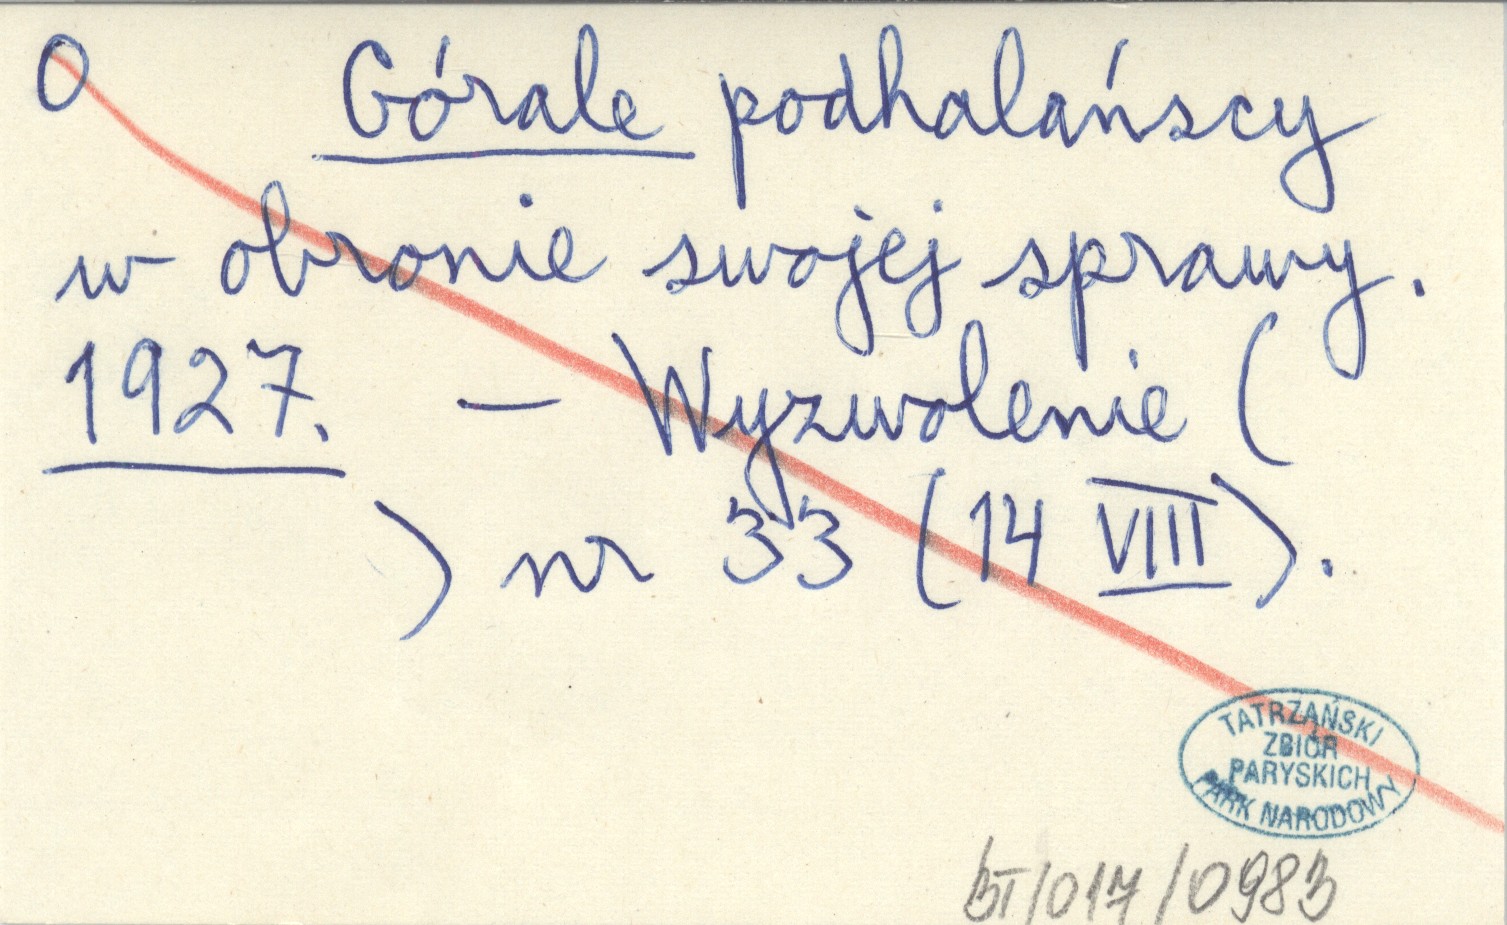 O Górale podhalańscy
w obronie swojej sprawy.
1927. — Wyzwolenie (
) nr 33 (14 VIII).
TATRZAŃSKI
ZBIÓR
PARYSKICH
PARK NARODOWY
/017/0983